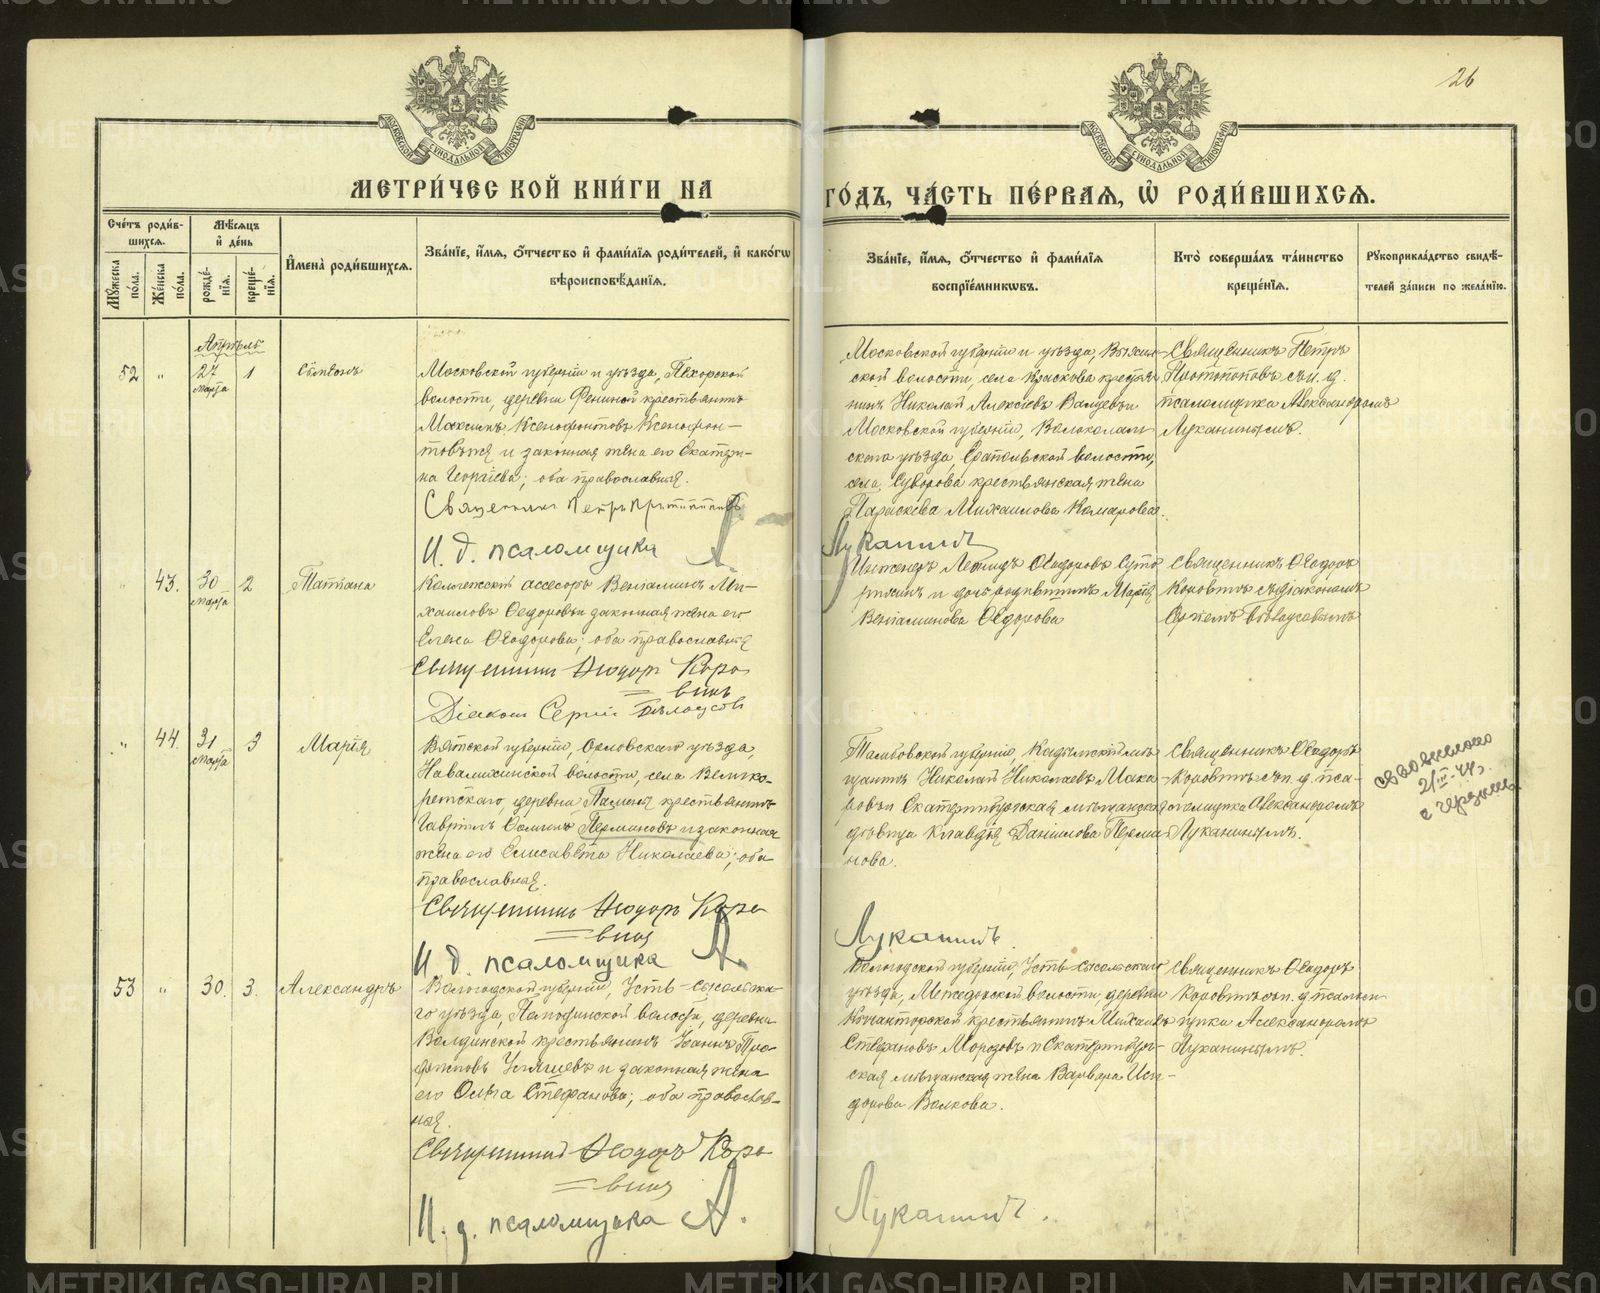 26
МОСКОВСКОЙ СѴНОДАЛЬНОЙ ТИПОГРАФІИ
МОСКОВСКОЙ СѴНОДАЛЬНОЙ ТИПОГРАФІИ
МЕТРИ́ЧЕСКОЙ КНИ́ГИ НА
ГО́ДЪ, ЧА́СТЬ ПЕ́РВАЯ, Ѡ҆ РОДИ́ВШИХСЯ.
Сче́тъ роди́вшихся.
Мѣ́сяцъ и҆ де́нь
Мꙋ́жеска по́ла.
Же́нска по́ла.
рожде́нїя.
креще́нїя.
И҆мена̀ роди́вшихся.
Зва́нїе, и҆́мя, ѻ҆́тчество и҆ фами́лїя роди́телей, и҆ како́гѡ
вѣроисповѣ́данїя.
Зва́нїе, и҆́мя, ѻ҆́тчество и҆ фами́лїя
воспрїе́мникѡвъ.
Кто̀ соверша́лъ та́инство
креще́нїя.
Рꙋкоприкла́дство свидѣ́-
телей за́писи по жела́нїю.
Апрѣль
52 " 27 марта 1
Московской губерніи и уѣзда, Пехорской
волости, деревни Фениной крестьянинъ
Максимъ Ксенофонтовъ Ксенофон-
товъ и законная жена его Екатери-
на Георгіева; оба православныя.
Священникъ Петръ Протопоповъ
И. д. псаломщика А.
Московской губерніи и уѣзда,
ской волости, села Краскова крестья-
нинъ Николай Алексѣевъ Валуевъ и
Московской губерніи, Волоколам-
скаго уѣзда, волости,
села Суворова крестьянская жена
Параскева Михаилова Комарова.
Луканинъ
Священникъ Петръ
Протопоповъ съ и. д.
псаломщика Александромъ
Луканинымъ.
" 43. 30 марта 2 Татіана
Коллежскій ассесоръ Веніаминъ Ми-
хаиловъ Ѳедоровъ и законная жена его
Елена Ѳеодорова; оба православныя
Священникъ Ѳеодоръ Коро-
винъ
Діаконъ Сергій Бѣлоусовъ
Инженеръ Леонидъ Ѳеодоровъ
и дочь родителей Марія
Веніаминова Ѳедорова
Священникъ Ѳеодоръ
Коровинъ съ діакономъ
Сергіемъ Бѣлоусовымъ
" 44. 31 марта 3 Марія
Вятской губерніи, Орловскаго уѣзда,
волости, села Велико-
рѣтскаго, деревни крестьянинъ
Гавріилъ Перминовъ и законная
жена его Елисавета Николаева; оба
православныя.
Священникъ Ѳеодоръ Коро-
винъ
И. д. псаломщика А.
Тамбовской губерніи, Кадомскій мѣ-
щанинъ Николай Николаевъ Мака-
ровъ и Екатеринбургская мѣщанская
дѣвица Клавдія Даніилова Перми-
нова.
Луканинъ.
Священникъ Ѳеодоръ
Коровинъ съ и. д. пса-
ломщика Александромъ
Луканинымъ.
21/III-44г.
53 " 30. 3. Александръ
Вологодской губерніи, Усть-Сысольска-
го уѣзда, волости, деревни
крестьянинъ Іоаннъ Про-
и законная жена
его Ольга Стефанова; оба православ-
ныя.
Священникъ Ѳеодоръ Коро-
винъ
И. д. псаломщика А.
Вологодской губерніи, Усть-Сысольскаго
уѣзда, Межадорской волости, деревни
крестьянинъ Михаилъ
Стефановъ Морозовъ и Екатеринбург-
ская мѣщанская жена Варвара Иси-
дорова Волкова.
Луканинъ.
Священникъ Ѳеодоръ
Коровинъ съ и. д. псалом-
щика Александромъ
Луканинымъ.
METRIKI.GASO-URAL.RU